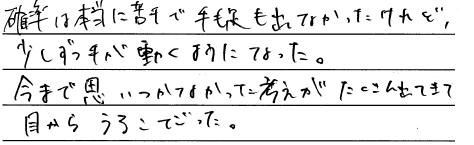 確率は本当に苦手で手も足も出てなかったけれど、
少しずつ手が動くようになった。
今まで思いつかなかった考えがたくさん出てきて
目からうろこでごった。